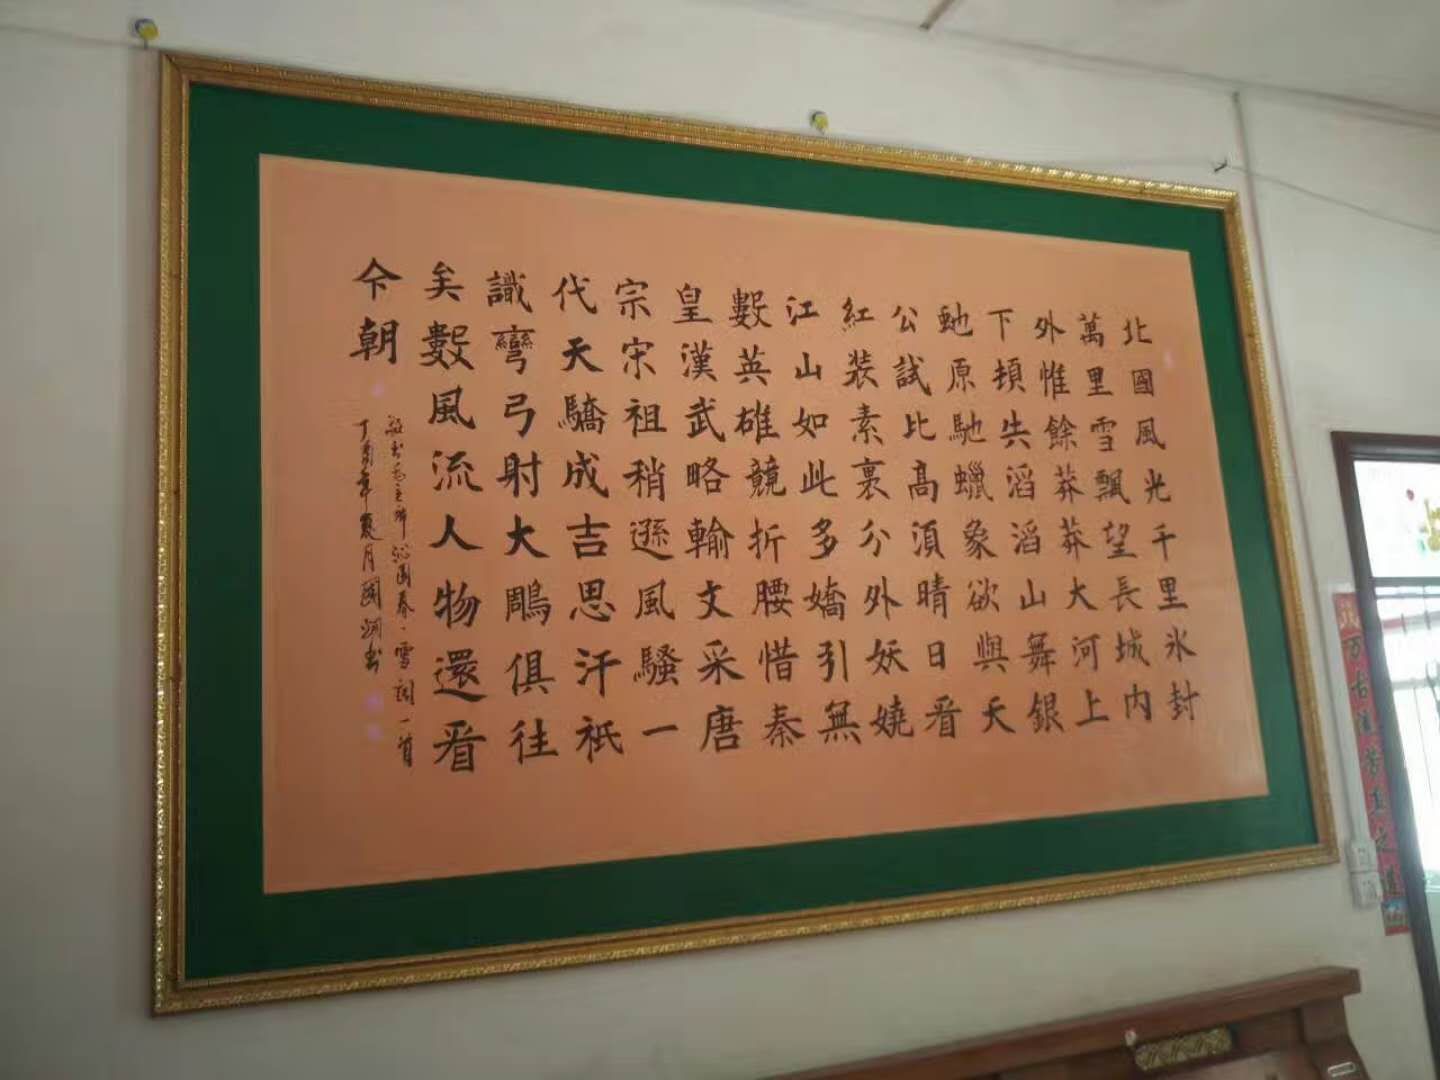 北國風光千里氷封
萬里雪飄望長城内
外惟餘莽莽大河上
下頓失滔滔山舞銀
虵原馳蠟象欲與天
公試比高須晴日看
紅裝素裹分外妖嬈
江山如此多嬌引無
數英雄競折腰惜秦
皇漢武略輸文采唐
宗宋祖稍遜風騷一
代天驕成吉思汗祇
識彎弓射大鵰俱往
矣數風流人物還看
今朝
敬書毛主席沁園春·雪詞一首
丁酉年夏月國書